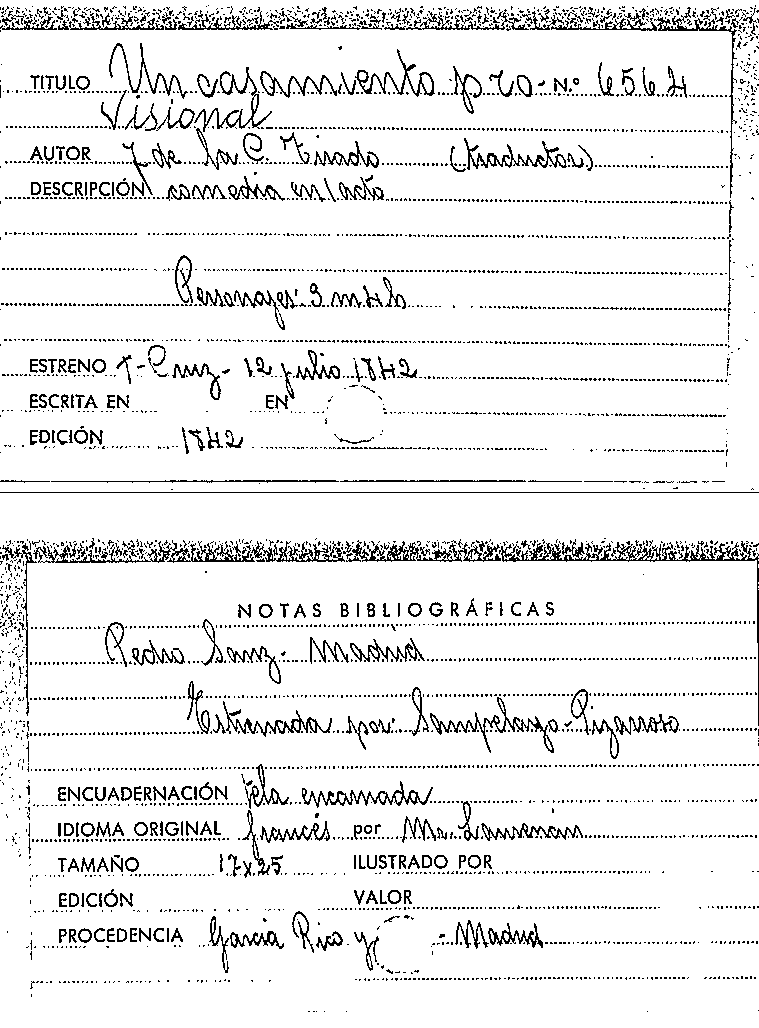 TITULO Un casamiento pro- N.º 6564
visional
AUTOR J de la C. Tirado (traductor)
DESCRIPCIÓN comedia en 1 acto
Personajes: 3 m 4 h
ESTRENO T- Cruz - 12 julio 1842
ESCRITA EN EN
EDICIÓN 1842
NOTAS BIBLIOGRÁFICAS
Pedro Sanz - Madrid
Estrenada por: Sampelayo - Pizarroso
ENCUADERNACIÓN tela encarnada
IDIOMA ORIGINAL francés por Mr.
TAMAÑO 17x25 ILUSTRADO POR
EDICIÓN VALOR
PROCEDENCIA Garcia Rico y - Madrid